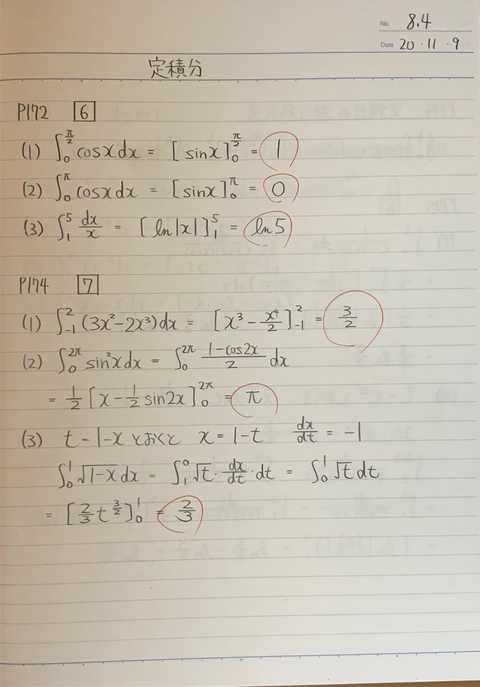 No. 8.4
Date 20・11・9
定積分
P172 [6]
(1) ∫₀^{π/2} cosx dx = [sinx]₀^{π/2} = 1
(2) ∫₀^π cosx dx = [sinx]₀^π = 0
(3) ∫₁^5 dx/x = [ln|x|]₁^5 = ln5
P174 [7]
(1) ∫₋₁^2 (3x²-2x³)dx = [x³ - x⁴/2]₋₁^2 = 3/2
(2) ∫₀^{2π} sin²x dx = ∫₀^{2π} (1-cos2x)/2 dx
= 1/2 [x - 1/2 sin2x]₀^{2π} = π
(3) t-1-x とおくと x=1-t dx/dt = -1
∫₀^1 √(1-x) dx = ∫₁^0 √t・dx/dt・dt = ∫₀^1 √t dt
= [2/3 t^{3/2}]₀^1 = 2/3